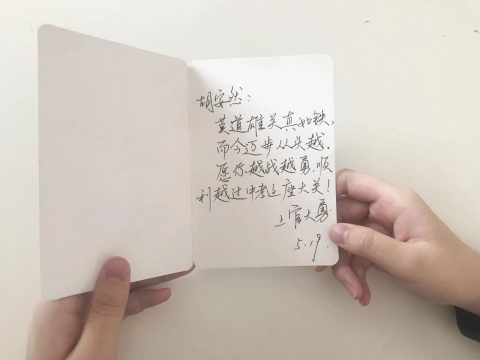 胡安然：
莫道雄关真如铁，
而今迈步从头越.
愿你越战越勇顺
利越过中考这座大关！
上官大勇
5.19.